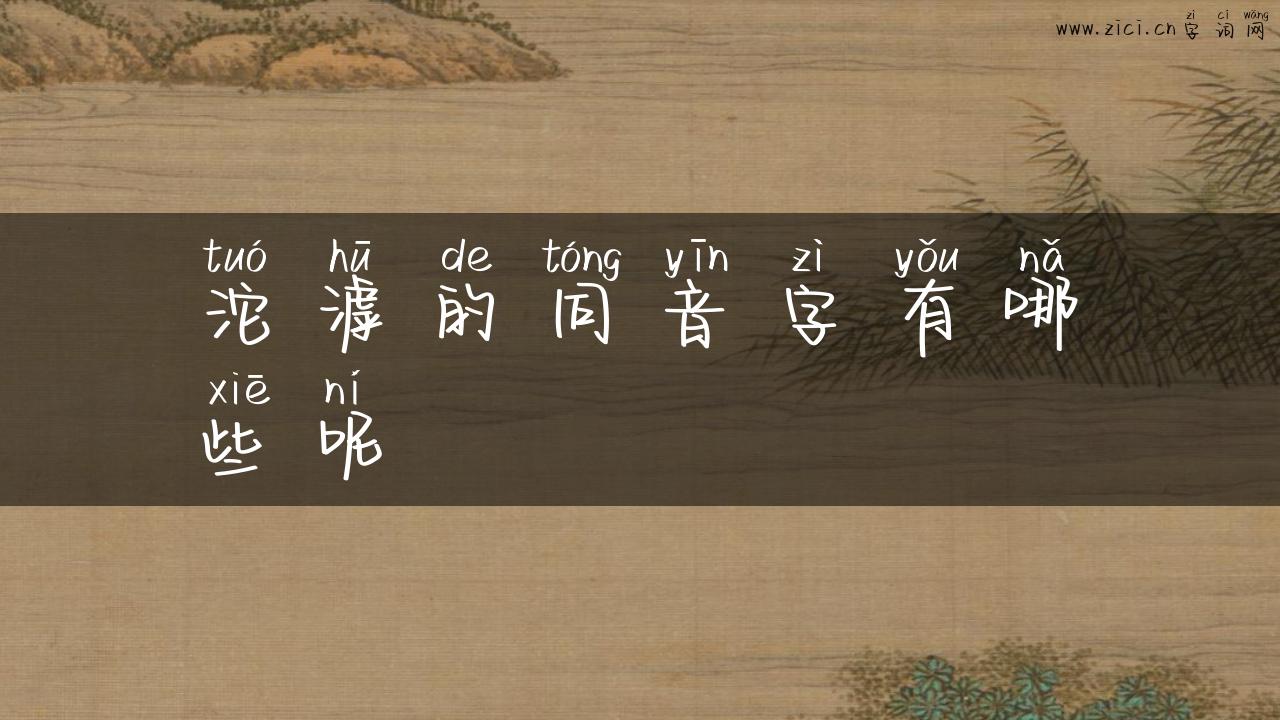 zì cí wǎng
www.zici.cn 字词网
tuó hū de tóng yīn zì yǒu nǎ
沱滹的同音字有哪
xiē ní
些呢